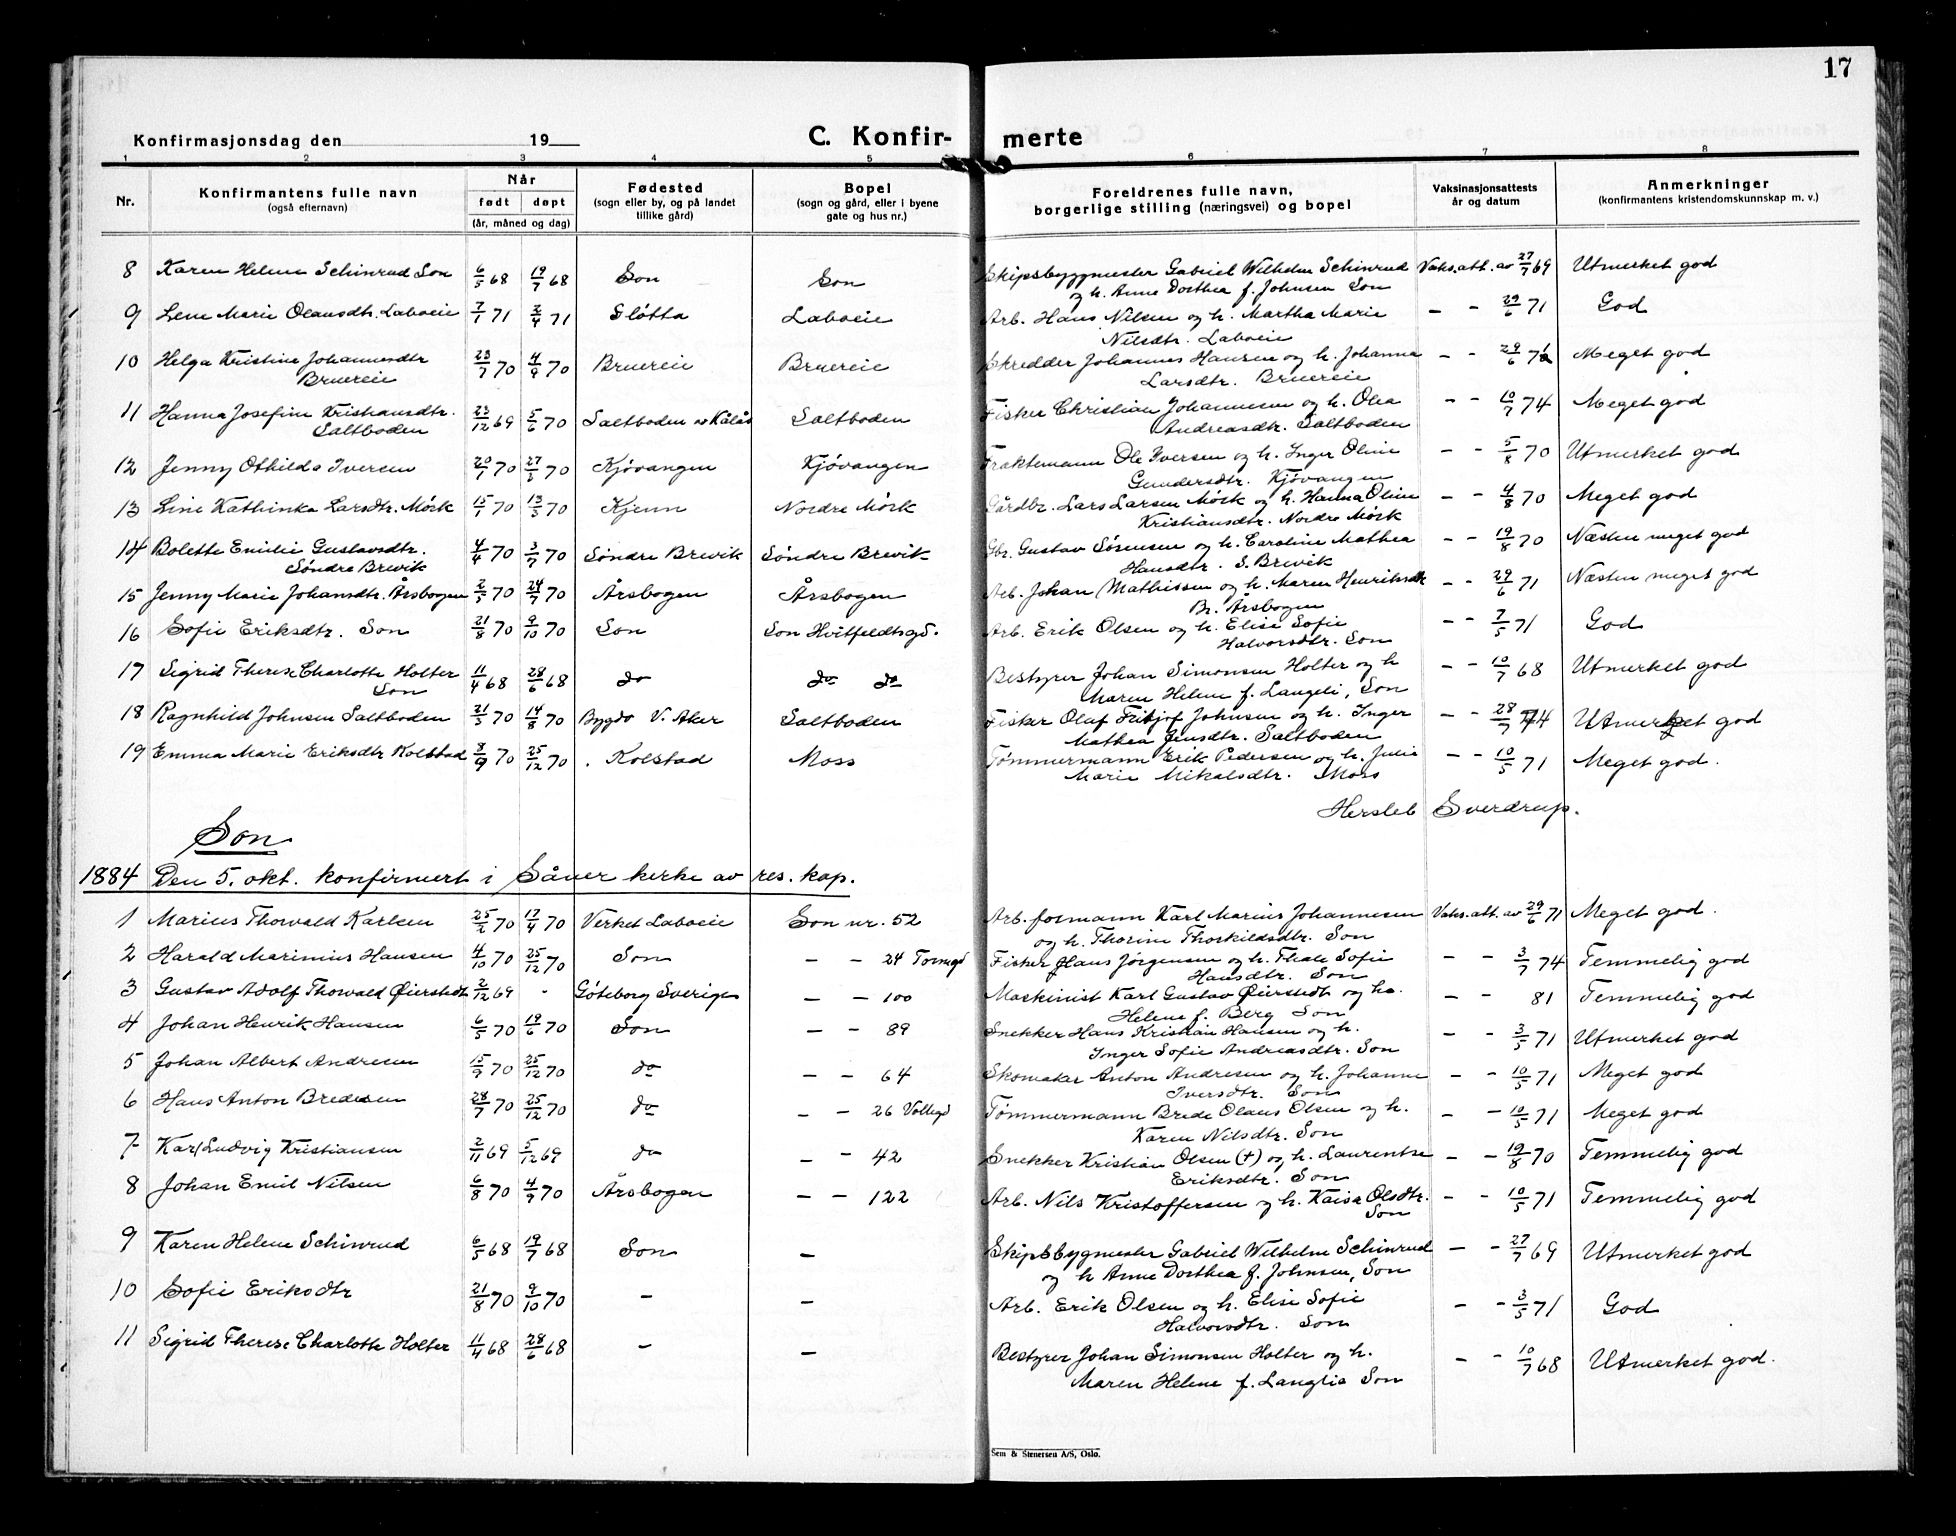 17
Konfirmasjonsdag den 19
C. Konfir- merte
1 2 3 4 5 6 7 8
Nr. Konfirmantens fulle navn (også efternavn) Når født døpt (år, måned og dag) Fødested (sogn eller by, og på landet tillike gård) Bopel (sogn og gård, eller i byene gate og hus nr.) Foreldrenes fulle navn, borgerlige stilling (næringsvei) og bopel Vaksinasjonsattests år og datum Anmerkninger (konfirmantens kristendomskunnskap m. v.)
8 Karen Helene Schinrud Son 6/5 68 19/7 68 Son Son Skipsbyggmester Gabriel Wilhelm Schinrud Vaks.att. av 27/7 69 Utmerket god
og h. Anne Dorthea f. Johnsen Son
9 Lene Marie Olausdtr. Laboeie 7/1 71 2/4 71 Sløtta Laboeie Arb. Hans Nilsen og h. Martha Marie - - 29/6 71 God
Nilsdtr. Laboeie
10 Helga Kristine Johannesdtr 23/7 70 4/9 70 Bruereie Bruereie Skredder Johannes Hansen og h. Johanna - - 29/6 71 Meget god
Bruereie Larsdtr. Bruereie
11 Hanna Josefine Kristiansdtr. 23/12 69 5/6 70 Saltboden av Kålås Saltboden Fisker Christian Johannesen og h. Olea - - 10/7 74 Meget god
Saltboden Andreasdtr. Saltboden
12 Jenny Othilda Iversen 20/1 70 27/3 70 Kjøvangen Kjøvangen Fraktemann Ole Iversen og h. Inger Oline - - 5/8 70 Utmerket god
Gundersdtr. Kjøvangen
13 Line Kathinka Larsdtr. Mørk 15/1 70 13/3 70 Kjenn Nordre Mørk Gårdbr. Lars Larsen Mørk og h. Hanna Oline - - 4/8 70 Meget god
Kristiansdtr. Nordre Mørk
14 Bolette Emilie Gustavsdtr. 4/4 70 3/7 70 Søndre Brevik Søndre Brevik Gbr. Gustav Sørensen og h. Caroline Mathea - - 19/8 70 Næsten meget god
Søndre Brevik Hansdtr. S. Brevik
15 Jenny Marie Johansdtr. Årsbogen 2/5 70 24/7 70 Årsbogen Årsbogen Arb. Johan Mathissen og h. Maren Henriksdtr - - 29/6 71 Næsten meget god
Br. Årsbogen
16 Sofie Eriksdtr. Son 21/8 70 9/10 70 Son Son Hvitfeldtsgd. Arb. Erik Olsen og h. Elise Sofie - - 7/5 71 God
Halvorsdtr. Son
17 Sigrid Therese Charlotte Holter 11/4 68 28/6 68 do do do Bestyrer Johan Simonsen Holter og h - - 10/7 68 Utmerket god
Son Maren Helene f. Langeli, Son
18 Ragnhild Johnsen Saltboden 21/5 70 14/8 70 Bygdø V. Aker Saltboden Fisker Olaf Fritjof Johnsen og h. Inger - - 28/7 74 Utmerket god
Mathea Jensdtr. Saltboden
19 Emma Marie Eriksdtr Kolstad 8/9 70 25/12 70 Kolstad Moss Tømmermann Erik Pedersen og h. Julie - - 10/5 71 Meget god.
Marie Mikalsdtr. Moss
Hersleb Sverdrup.
Son
1884 Den 5. okt. konfirmert i Såner kirke av res. kap.
1 Marius Thorvald Karlsen 25/2 70 17/4 70 Verket Laboeie Son nr. 52 Arb. formann Karl Marius Johannesen Vaks.att. av 29/6 71 Meget god.
og h. Thorine Thorkildsdtr. Son
2 Harald Marinius Hansen 4/10 70 25/12 70 Son - - 24 Torvegd Fisker Hans Jørgensen og h. Thale Sofie - - 3/7 74 Temmelig god
Hansdtr. Son
3 Gustav Adolf Thorvald Øierstedt 2/12 69 - Göteborg Sverige - - 100 Maskinist Karl Gustav Øierstedt og h. - - 81 Temmelig god
Helene f. Berg Son
4 Johan Henrik Hansen 6/5 70 19/6 70 Son - - 89 Snekker Hans Kristian Hansen og h. - - 3/5 71 Utmerket god
Inger Sofie Andreasdtr. Son
5 Johan Albert Andresen 15/9 70 25/12 70 do - - 64 Skomaker Anton Andresen og h. Johanne - - 10/5 71 Meget god
Iversdtr. Son
6 Hans Anton Bredesen 28/7 70 25/12 70 do - - 26 Vollegd Tømmermann Brede Olaus Olsen og h. - - 10/5 71 Meget god
Karen Nilsdtr. Son
7 Karl Ludvig Kristiansen 2/11 69 5/12 69 do - - 42 Snekker Kristian Olsen (+) og h. Laurentse - - 19/8 70 Temmelig god
Eriksdtr. Son
8 Johan Emil Nilsen 6/8 70 4/9 70 Årsbogen - - 122 Arb. Nils Kristoffersen og h. Kaisa Olsdtr. - - 10/5 71 Temmelig god
Son
9 Karen Helene Schinrud 6/5 68 19/7 68 Son - Skipsbygmester Gabriel Wilhelm Schinrud - - 27/7 69 Utmerket god
og h Anne Dorthea f. Johnsen, Son
10 Sofie Eriksdtr 21/8 70 9/10 70 - - Arb. Erik Olsen og h. Elise Sofie - - 3/5 71 God
Halvorsdtr. Son
11 Sigrid Therese Charlotte Holter 11/4 68 28/6 68 - - Bestyrer Johan Simonsen Holter og h. - - 10/7 68 Utmerket god.
Maren Helene f. Langlie Son
Sem & Stenersen A/S, Oslo.